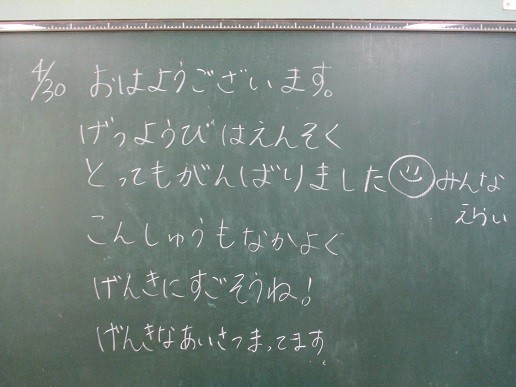 4/30 おはようございます。
げつようびはえんそく
とってもがんばりました みんな
えらい
こんしゅうもなかよく
げんきにすごそうね!
げんきなあいさつまってます